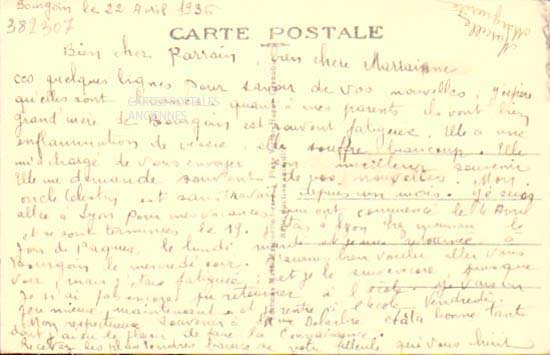 Bourgoin le 22 Avril 1936
382307
CARTE POSTALE
Bien cher Parrain, bien chère Marraine
ces quelques lignes pour savoir de vos nouvelles, j'espère
qu'elles sont quant à mes parents ils vont bien
grand mère de Bourgoin est souvent fatiguée. Elle a une
CARTES POSTALES
ANCIENNES
inflammation de vessie, elle souffre beaucoup. Elle
m'a chargé de vous envoyer son meilleur souvenir
Elle me demande souvent de vos nouvelles. Mon
oncle est sans travail depuis un mois. Je suis
allée à Lyon pour mes vacances qui ont commencé le 4 Avril
et se sont terminées le 19. à Lyon maman le
jour de Paques, le lundi et je suis retournée à
Bourgoin le mercredi soir. bien voulu aller vous
voir, mais j'étais fatiguée et je le suis encore puisque
je n'ai pas encore pu retourner à l'école. Je vais un
peu mieux maintenant et je rentre à l'école vendredi
Mon respectueux souvenir à Mme et à ta bonne tante
dont j'ai eu le plaisir de faire la connaissance.
Recevez les plus tendres baisers de votre filleule qui vous chérit
Marguerite